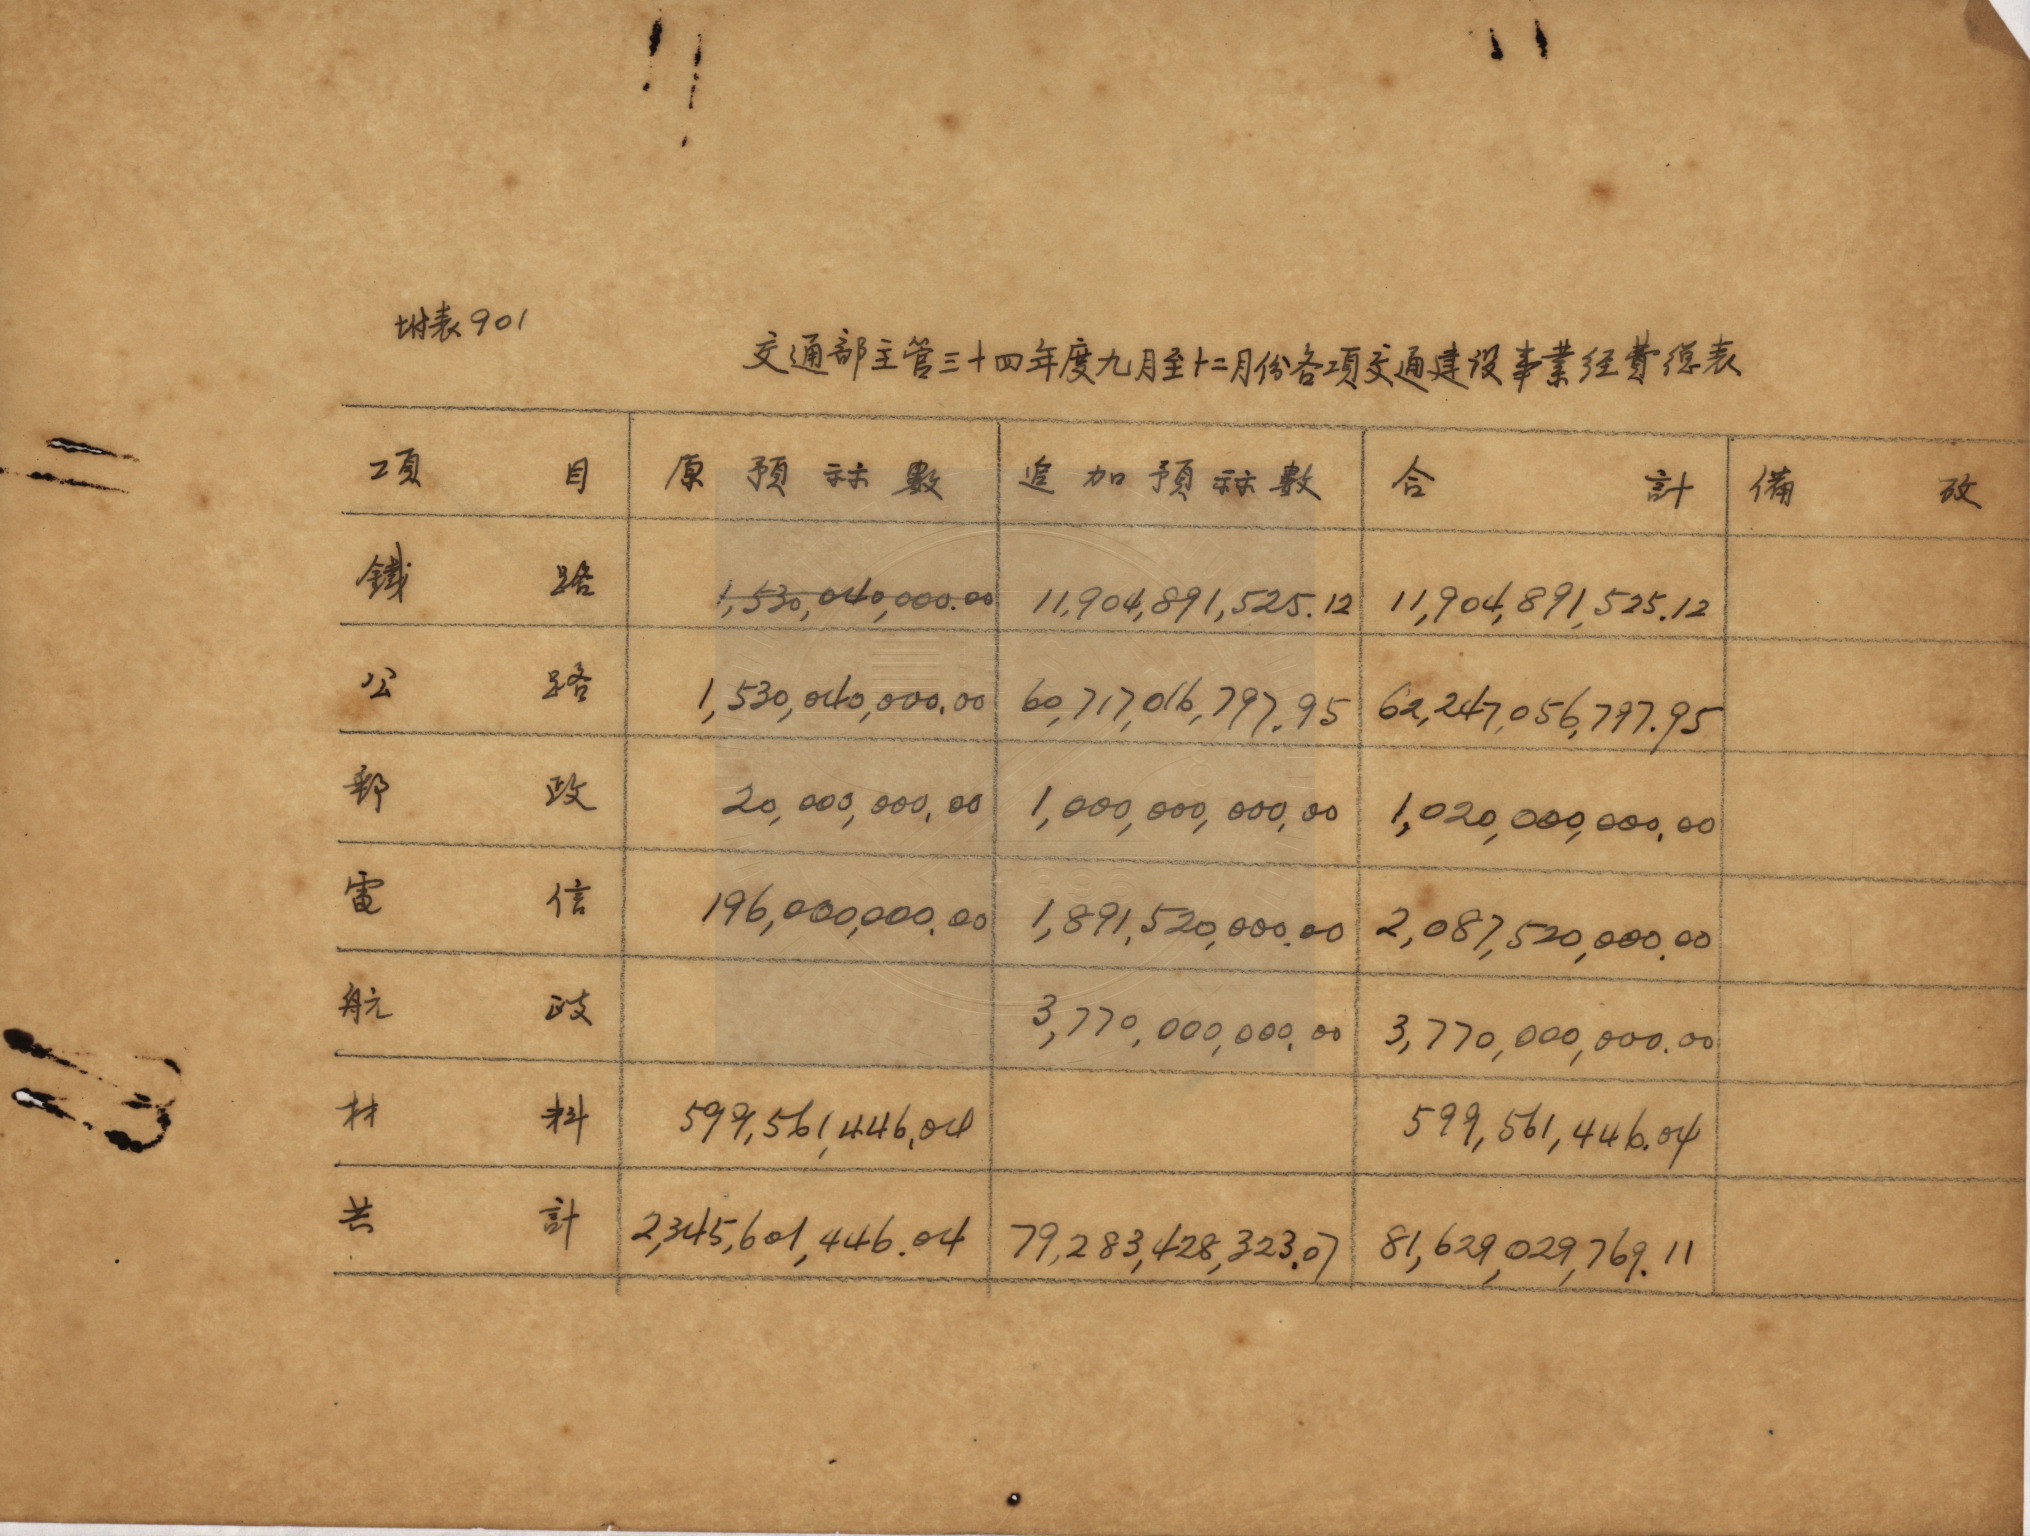 附表901
交通部主管三十四年度九月至十二月份各項交通建设事業经費总表
項目 原預祘數 追加預祘數 合計 備攷
鐵路 1,530,040,000.00 11,904,891,525.12 11,904,891,525.12
公路 1,530,040,000.00 60,717,016,797.95 62,247,056,797.95
郵政 20,000,000.00 1,000,000,000.00 1,020,000,000.00
電信 196,000,000.00 1,891,520,000.00 2,087,520,000.00
航政 3,770,000,000.00 3,770,000,000.00
材料 599,561,446.04 599,561,446.04
共計 2,345,601,446.04 79,283,428,323.07 81,629,029,769.11